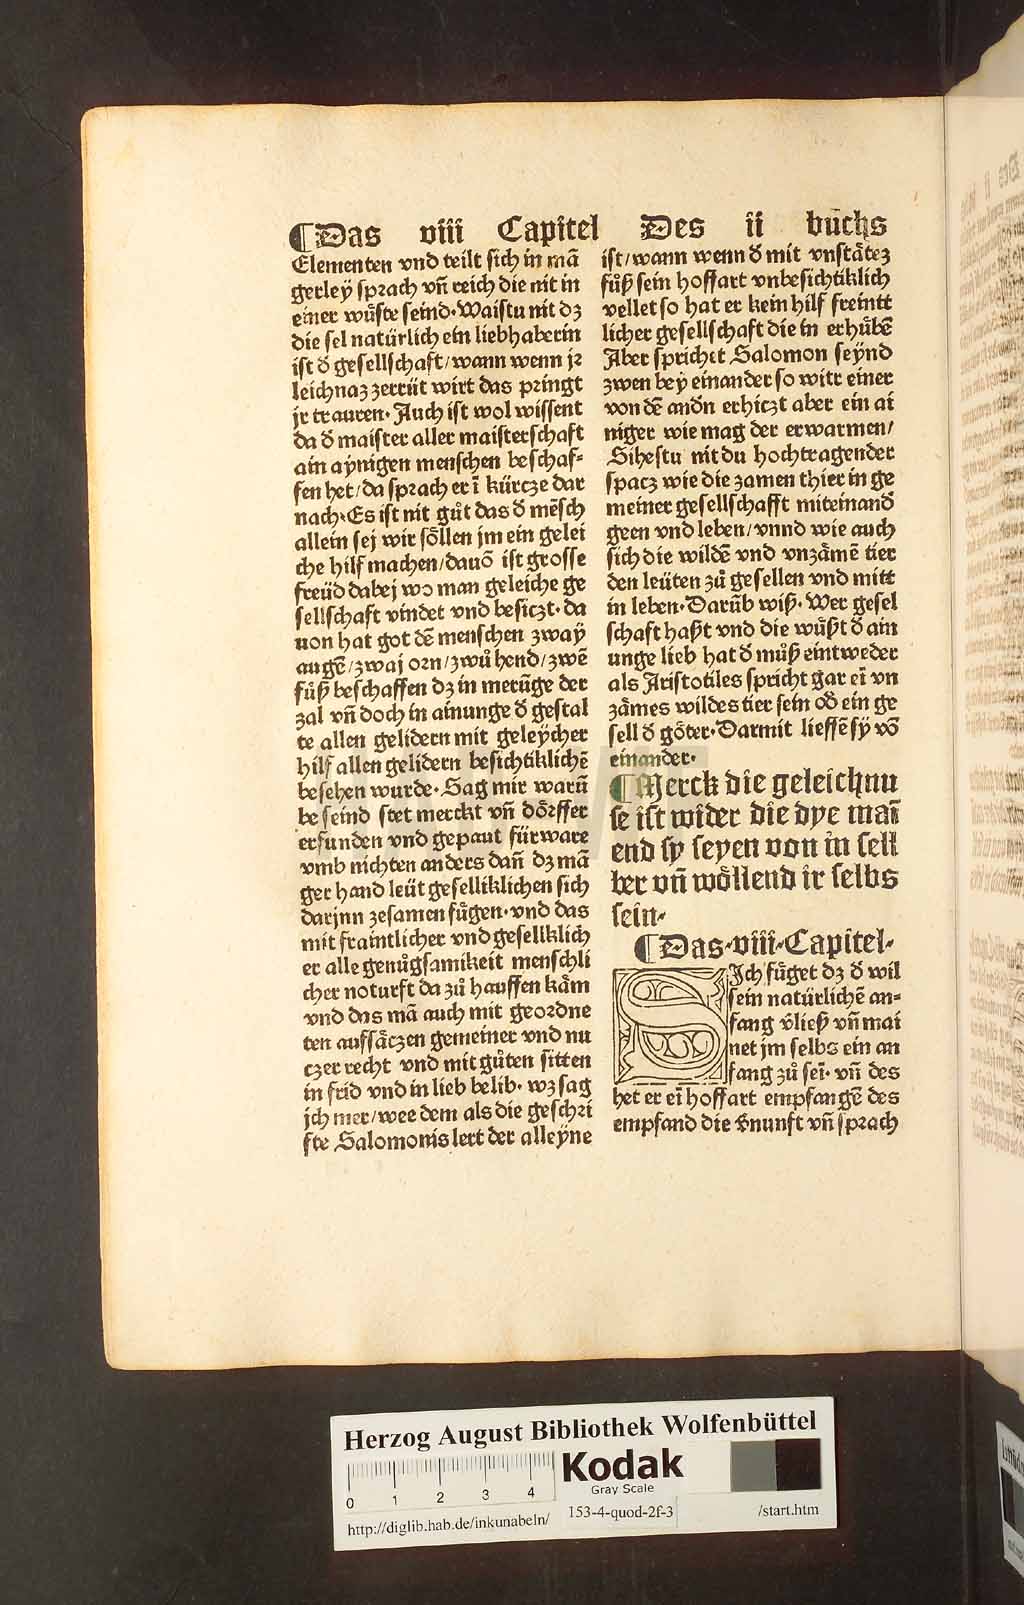 ¶Das viii Capitel Des ii bůchs
Elementen vnd teilt sich in mā
gerley sprach vñ reich die nit in
einer wůste seind·Waistu nit dz
die sel natürlich ein liebhaberin
ist d̄ gesellschaft/wann wenn jr
leichnaz zerrüt wirt das pringt
jr trauren·Auch ist wol wissent
da d̄ maister aller maisterschaft
ain aynigen menschen beschaf⸗
fen het/da sprach er ī kürcze dar
nach·Es ist nit gůt das d̄ mēsch
allein sej wir söllen jm ein gelei
che hilf machen/dauō ist grosse
freüd dabej wo man geleiche ge
sellschaft vindet vnd besiczt·da
uon hat got dē menschen zway
augē/zwaj orn/zwů hend/zwē
füß beschaffen dz in merūge der
zal vñ doch in ainunge d̄ gestal
te allen gelidern mit geleÿcher
hilf allen gelidern besichtiklichē
besehen wurde·Sag mir warū
be seind stet merckt vñ dörffer
erfunden vnd gepaut für ware
vmb nichten anders dañ dz mā
ger hand leüt geselliklichen sich
darjnn zesamen fügen·vnd das
mit fraintlicher vnd geselklich
er alle genůgsamikeit menschli
cher noturft da zů hauffen käm
vnd das mā auch mit geordne
ten aufsäczen gemeiner vnd nu
czer recht vnd mit gůten sitten
in frid vnd in lieb belib·wz sag
jch mer/wee dem als die geschri
fte Salomonis lert der alleÿne
ist/wann wenn d̄ mit vnstätez
fůß sein hoffart vnbesichtiklich
vellet so hat er kein hilf freintt
licher gesellschaft die in erhůbē
Aber sprichet Salomon seÿnd
zwen bey einander so wirt einer
von dē andn erhiczt aber ein ai
niger wie mag der erwarmen/
Sihestu nit du hochtragender
spacz wie die zamen thier in ge
meiner gesellschafft miteinand̄
geen vnd leben/vnnd wie auch
sich die wildē vnd vnzämē tier
den leüten zů gesellen vnd mitt
in leben·Darūb wiß·Wer gesel
schaft haßt vnd die wůßt d̄ ain
unge lieb hat d̄ můß eintweder
als Aristotiles spricht gar eī vn
zämes wildes tier sein od̄ ein ge
sell d̄ göter·Darmit lieffē sÿ vō
einander·
¶Merck die geleichnu
se ist wider die dye maī
end sy seyen von in sell
ber vñ wöllend ir selbs
sein·
¶Das·viii·Capitel·
SIch füget dz d̄ wil
sein natürlichē an⸗
fang v̄ließ vñ mai
net jm selbs ein an
fang zů seī·vñ des
het er eī hoffart empfangē des
empfand die v̄nunft vñ sprach
Herzog August Bibliothek Wolfenbüttel
Kodak
Gray Scale
0 1 2 3 4
http://diglib.hab.de/inkunabeln/
153-4-quod-2f-3
/start.htm